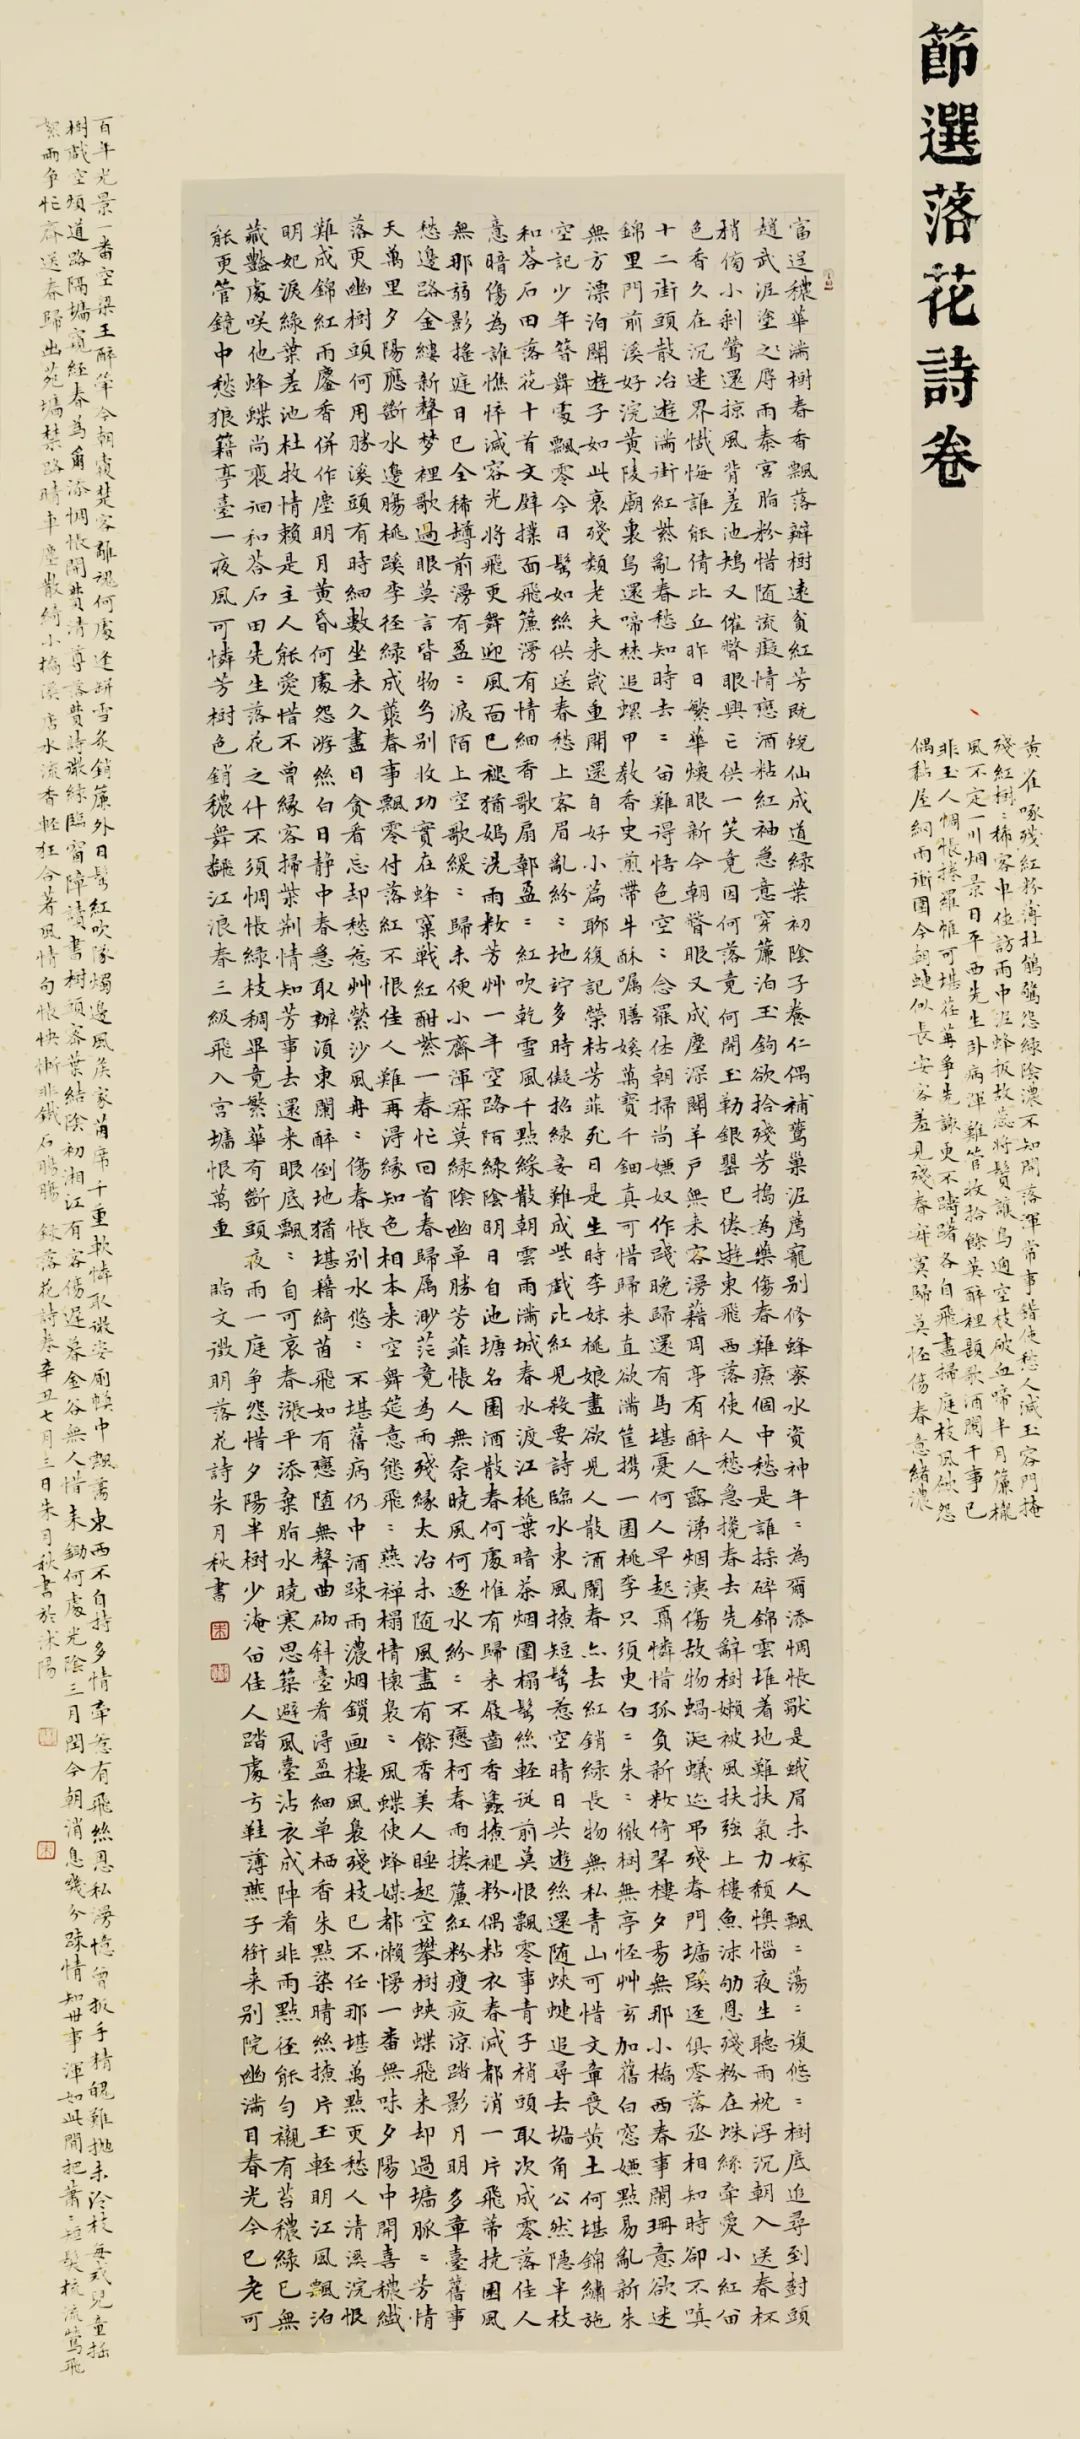 節選落花詩卷
黄雀啄殘紅粉薄杜鵑強怨綠陰濃不知開落渾常事錯使愁人減玉容門掩
殘紅樹:稀客中佳訪雨中泥蜂扳故蕊將鬚護鳥過空枝破血啼半月簾櫳
風不定一川烟景日平西先生卧病渾難管收拾餘英醉裡題歌酒闌干事已
非玉人惆悵搴羅帷可堪荏苒爭先謝更不躊躇各自飛盡掃庭枝風似怨
偶黏屋網雨銜圍今朝蝶似長安客羞見殘春寂寞歸莫怪傷春意緒濃
富逞穠華滿樹春香飄落瓣樹還貧紅芳既蛻仙成道綠葉初陰子養仁偶補鶯巢泥薦寵別修蜂蜜水資神年:為爾添惆悵獸是蛾眉未嫁人飄:蕩:復悠:樹底追尋到封頭
趙武泥塗之辱雨秦宮脂粉惜随流癡情戀酒粘紅袖急意穿簾泊玉鉤欲拾殘芳搗為藥傷春難療個中愁是誰揉碎錦雲堆着地難扶氣力頹懊惱夜生聽雨枕浮沉朝入送春杯
梢傍小剩鶯還掠風背差池鳩又催瞥眼興亡供一笑竟因何落竟何開玉勒銀罌已倦遊東飛西落使人愁急攙春去先辭樹嬾被風扶強上樓魚沫劬恩殘粉在蛛絲牽愛小紅留
色香久在沉迷界懺悔誰能倩比丘昨日繁華煥眼新今朝瞥眼又成塵深關羊户無来客漫藉周亭有醉人露涕烟洟傷故物蝸涎蟻迹弔殘春門墻蹊逕俱零落丞相知時卻不嗔
十二街頭散冶遊滿街紅紫亂春愁知時去:留難得悟色空:念罷休朝掃尚嫌奴作踐晚歸還有馬堪憂何人早起肩憐惜孤負新妝倚翠樓夕昜無那小橋西春事闌珊意欲迷
錦里門前溪好浣黃陵廟裏鳥還啼焚追螺甲教香史煎帶牛酥囑膳媛萬寶千鈿真可惜歸来直欲滿筐携一園桃李只須吏白:朱:徹樹無亭怪艸玄加舊白窓嫌點易亂新朱
無方漂泊關遊子如此衰殘類老夫来歲重開還自好小篇聊復記榮枯芳菲死日是生時李妹桃娘盡欲兒人散酒闌春亦去紅銷綠長物無私青山可惜文章喪黄土何堪錦繡施
空記少年簪舞處飄零今日鬓如絲供送春愁上客眉亂紛:地竚多時儗招綠妾難成些戲比紅兒殺要詩臨水東風撩短鬓惹空晴日共遊絲還随蛺蝶追尋去墻角公然隱半枝
和荅石田落花十首文壁撲面飛簾漫有情細香歌扇鄣盈:紅吹乾雪風千點綵散朝雲雨滿城春水渡江桃葉暗茶烟圍榻鬓絲輕從前莫恨飄零事青子梢頭取次成零落佳人
意暗傷為誰憔悴減容光將飛更舞迎風面已褪猶嫣洗雨妝芳艸一年空路陌綠陰明日自池塘名園酒散春何處惟有歸来屐齒香蠧撩褪粉偶粘衣春減都消一片飛蒂撓園風
無那弱影摇庭日已全稀樽前漫有盈:淚陌上空歌緩:歸未便小齋渾寂莫綠陰幽草勝芳菲悵人無奈曉風何逐水紛:不戀柯春雨捲簾紅粉瘦夜涼踏影月明多章臺舊事
愁邊路金縷新聲梦裡歌過眼莫言皆物分别收功實在蜂窠戰紅酣紫一春忙回首春歸属渺茫竟為雨殘緣太冶未随風盡有餘香美人睡起空攀樹蛺蝶飛来却過墻脈:芳情
天萬里夕陽應斷水邊腸桃蹊李徑綠成叢春事飄零付落紅不恨佳人難再淂緣知色相本来空舞筵意態飛:燕禅榻情懷裊:風蝶使蜂媒都懶慢一番無味夕陽中開喜穠纖
落更幽樹頭何用勝溪頭有時細數坐来久盡日貪看忘却愁惹艸縈沙風冉:傷春悵别水悠:不堪舊病仍中酒踈雨濃烟鎖画樓風裊殘枝已不任那堪萬點更愁人清溪浣恨
難成錦紅雨麈香併作塵明月黃昏何處怨游絲白日静中春急取辦湏東闌醉倒地猶堪藉綺茵飛如有戀堕無聲曲砌斜臺看淂盈細草栖香朱點染晴絲撩片玉輕明江風飄泊
明妃淚綠葉差池杜牧情賴是主人能愛惜不曾緣客掃柴荆情知芳事去還来眼底飄:自可哀春漲平添棄脂水曉寒思築避風臺沾衣成陣看非雨點径能勻襯有苔穠綠已無
藏豔處咲他蜂蝶尚裵徊和荅石田先生落花之什不須惆悵綠枝稠畢竟繁華有斷頭夜雨一庭争怨惜夕陽半樹少淹留佳人踏處弓鞋薄燕子銜来别院幽滿目春光今已老可
能更管鏡中愁狼籍亭臺一夜風可憐芳樹色銷穠舞飜江浪春三級飛入宮墻恨萬重 臨文徵明落花詩朱月秋書
百年光景一番空梁王醉筆今朝霰楚客離魂何處逢餅雪炙銷簾外日鬓紅吹隊燭邊風矦家茵席千重軟憐取微姿廁幀中飄蕩東西不自持多情牽惹有飛絲恩私漫憶曾扳手精魄難拋未冷枝每戒兒童揺
樹戲空煩道路隔墻窺經春為爾添惆悵開費清尊落費詩濃綠臨窗障讀書樹頭客葉結陰初湘江有客傷遲暮金谷無人惜未鋤何處光陰三月閏今朝消息幾分踈情知世事渾如此閒把蕭:短髮梳流鶯飛
絮兩争忙齊送春歸出苑墻禁路晴車塵散綺小橋溪店水流香輕狂今著風情句悵怏慚非鐵石腸腸 錄落花詩卷辛丑七月三日朱月秋書於沭陽